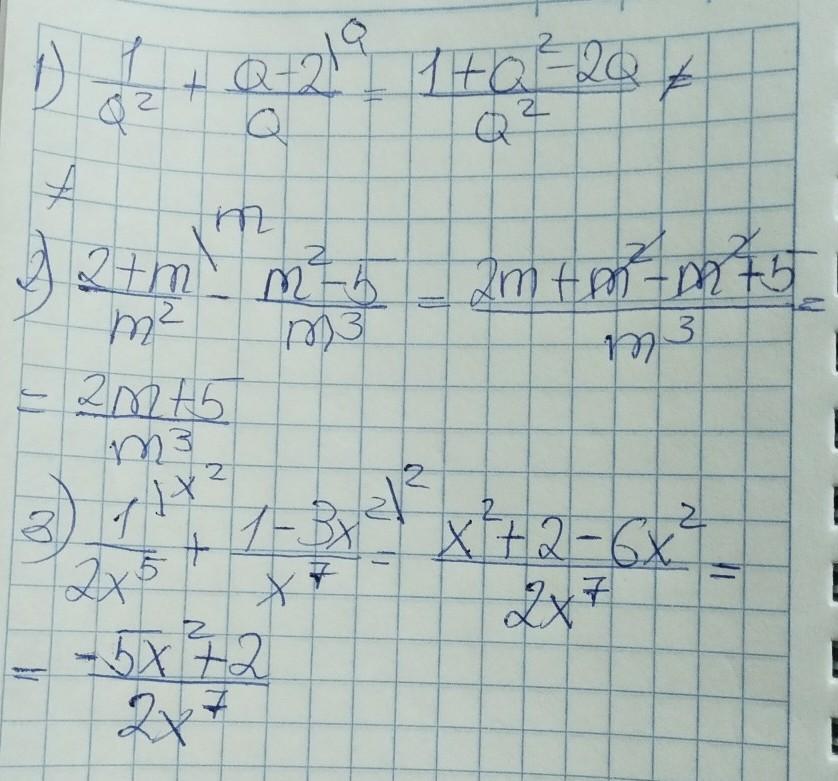 1) 1/a² + (a-2\a)/a = (1+a²-2a)/a² ≠
≠
2) (2+m\m)/m² - (m²-5)/m³ = (2m+m²-m²+5)/m³ =
= (2m+5)/m³
3) (1\x²)/2x⁵ + (1-3x²\2)/x⁷ = (x²+2-6x²)/2x⁷ =
= (-5x²+2)/2x⁷